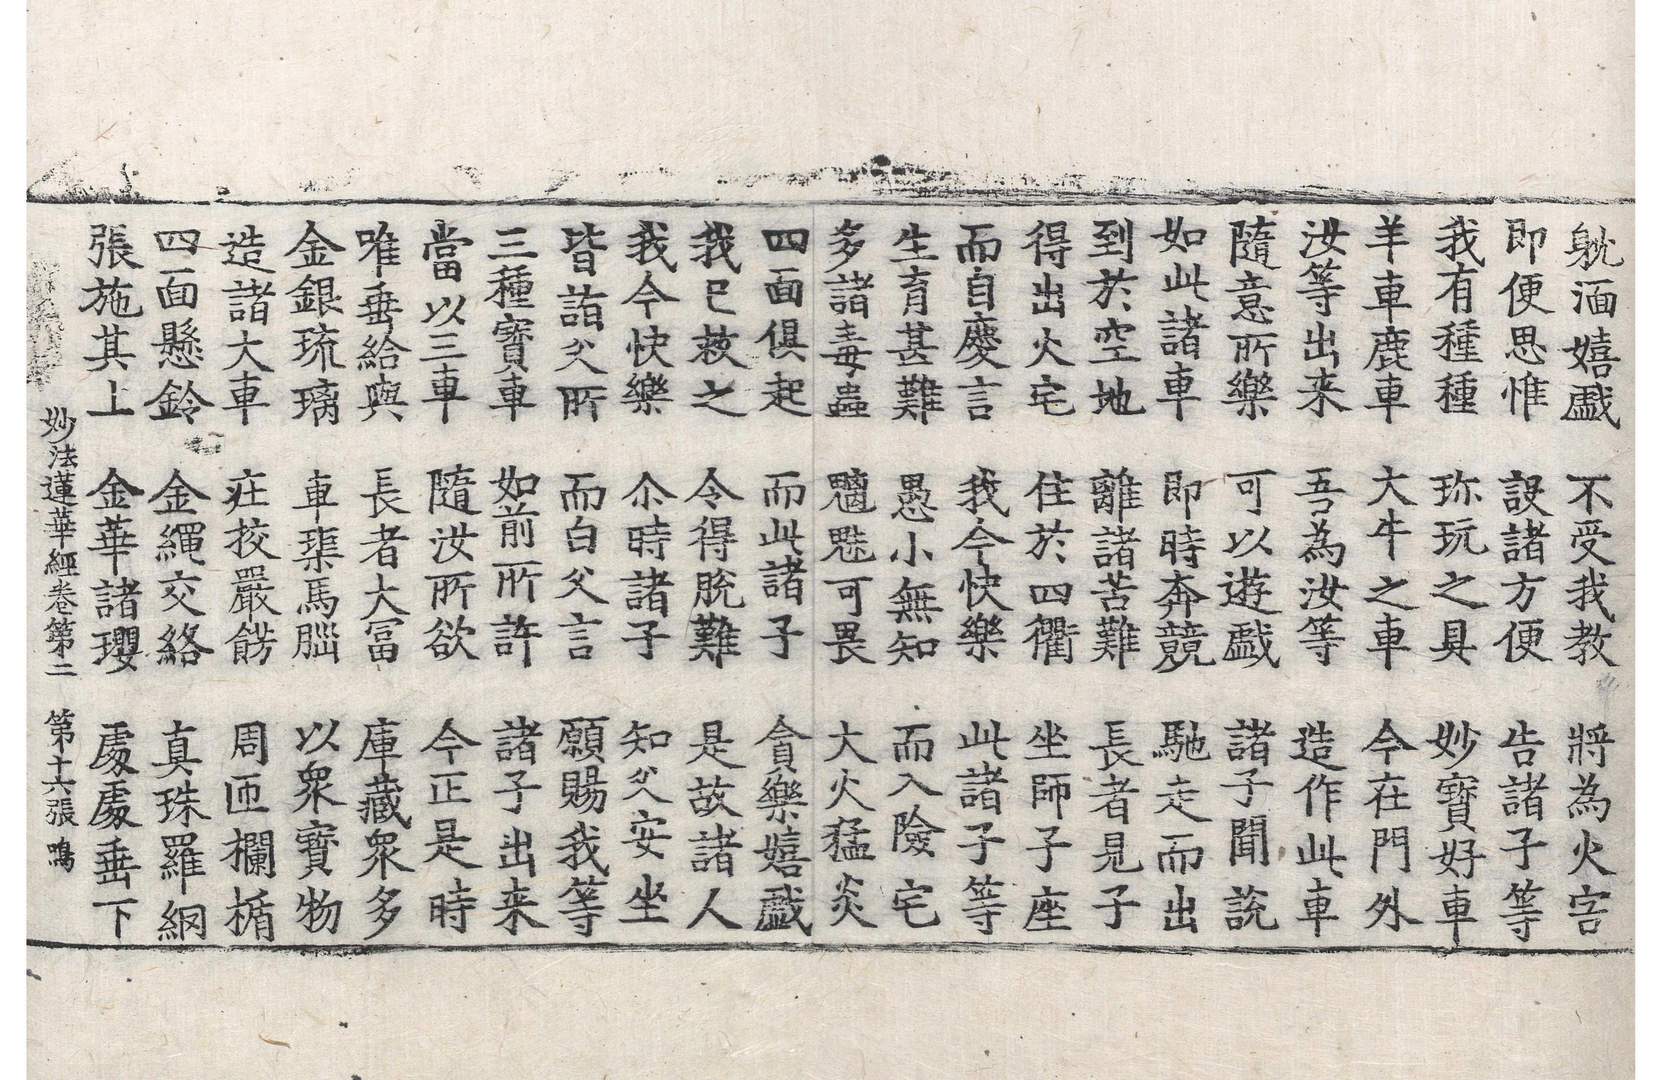 躭湎嬉戲 不受我教 將為火害
即便思惟 設諸方便 告諸子等
我有種種 珎玩之具 妙寶好車
羊車鹿車 大牛之車 今在門外
汝等出来 吾為汝等 造作此車
隨意所樂 可以遊戲 諸子聞說
如此諸車 即時奔競 馳走而出
到於空地 離諸苦難 長者見子
得出火宅 住於四衢 坐師子座
而自慶言 我今快樂 此諸子等
生育甚難 愚小無知 而入險宅
多諸毒蟲 魑魅可畏 大火猛炎
四面俱起 而此諸子 貪樂嬉戲
我已救之 令得脫難 是故諸人
我今快樂 尒時諸子 知父安坐
皆詣父所 而白父言 願賜我等
三種寶車 如前所許 諸子出来
當以三車 隨汝所欲 今正是時
唯垂給與 長者大冨 庫藏衆多
金銀琉璃 車璖馬腦 以衆寶物
造諸大車 莊挍嚴飾 周匝欄楯
四面懸鈴 金繩交絡 真珠羅網
張施其上 金華諸瓔 處處垂下
妙法蓮華經卷第二 第十六張 鳴